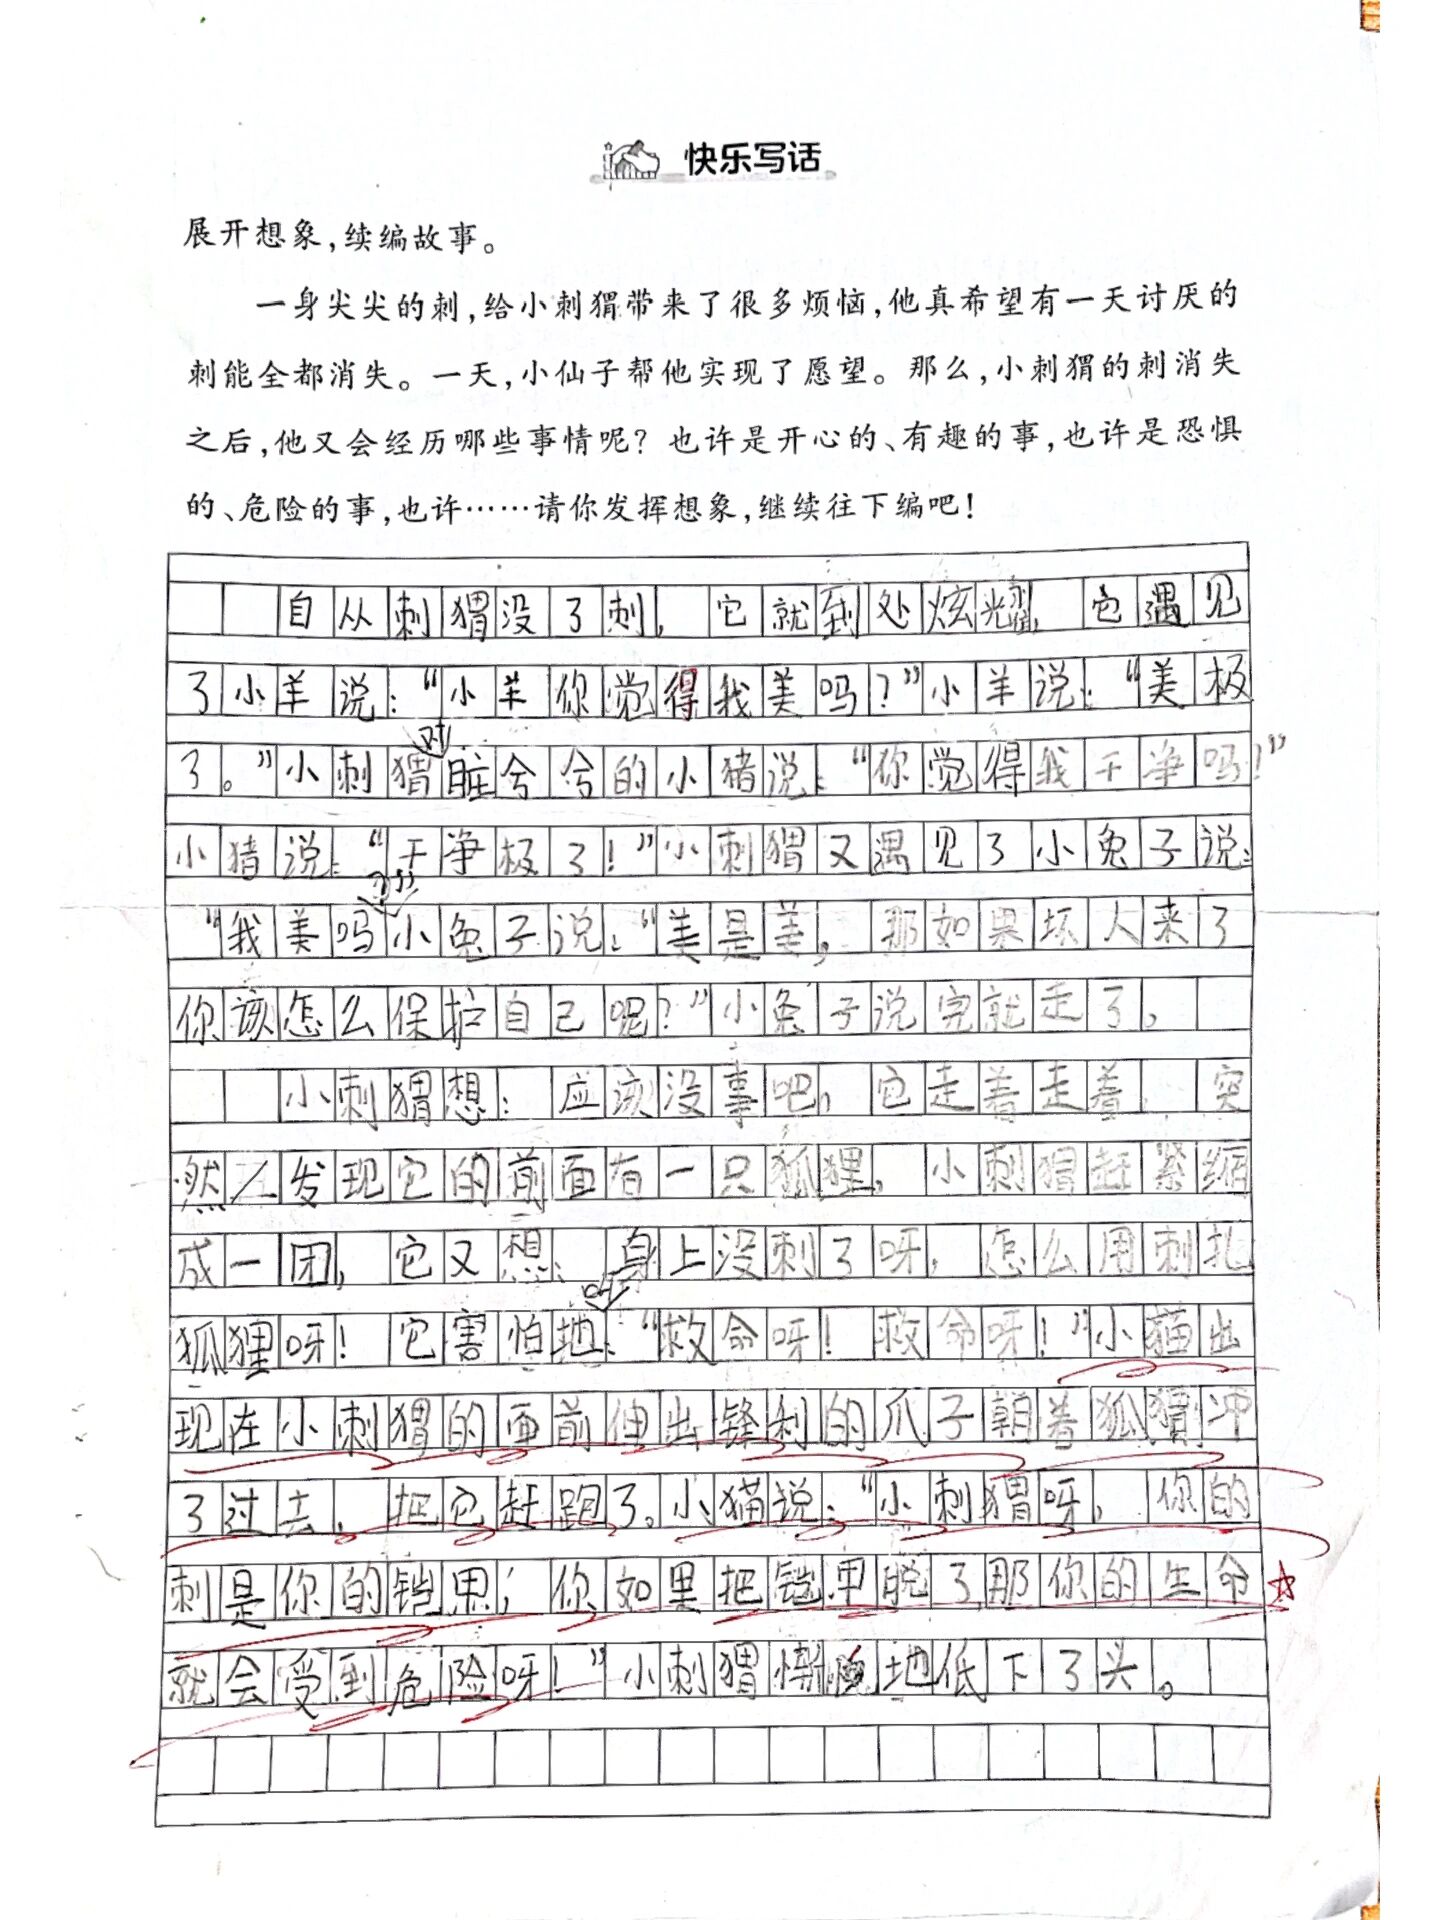 快乐写话
展开想象,续编故事。
一身尖尖的刺,给小刺猬带来了很多烦恼,他真希望有一天讨厌的
刺能全都消失。一天,小仙子帮他实现了愿望。那么,小刺猬的刺消失
之后,他又会经历哪些事情呢?也许是开心的、有趣的事,也许是恐惧
的、危险的事,也许……请你发挥想象,继续往下编吧!
自从刺猬没了刺,它就到处炫耀,它遇见
了小羊说:“小羊你觉得我美吗?”小羊说:“美极
了。”小刺猬对脏兮兮的小猪说:“你觉得我干净吗!”
小猪说:“干净极了!”小刺猬又遇见了小兔子说:
“我美吗?”小兔子说:“美是美,那如果坏人来了
你该怎么保护自己呢?”小兔子说完就走了,
小刺猬想:应该没事吧,它走着走着,突
然发现它的前面有一只狐狸,小刺猬赶紧缩
成一团,它又想:身上没刺了呀,怎么用刺扎
狐狸呀!它害怕地叫:“救命呀!救命呀!”小猫出
现在小刺猬的面前伸出锋利的爪子朝着狐猬冲
了过去,把它赶跑了。小猫说:“小刺猬呀,你的
刺是你的铠甲;你如果把铠甲脱了那你的生命
就会受到危险呀!”小刺猬惭愧地低下了头。